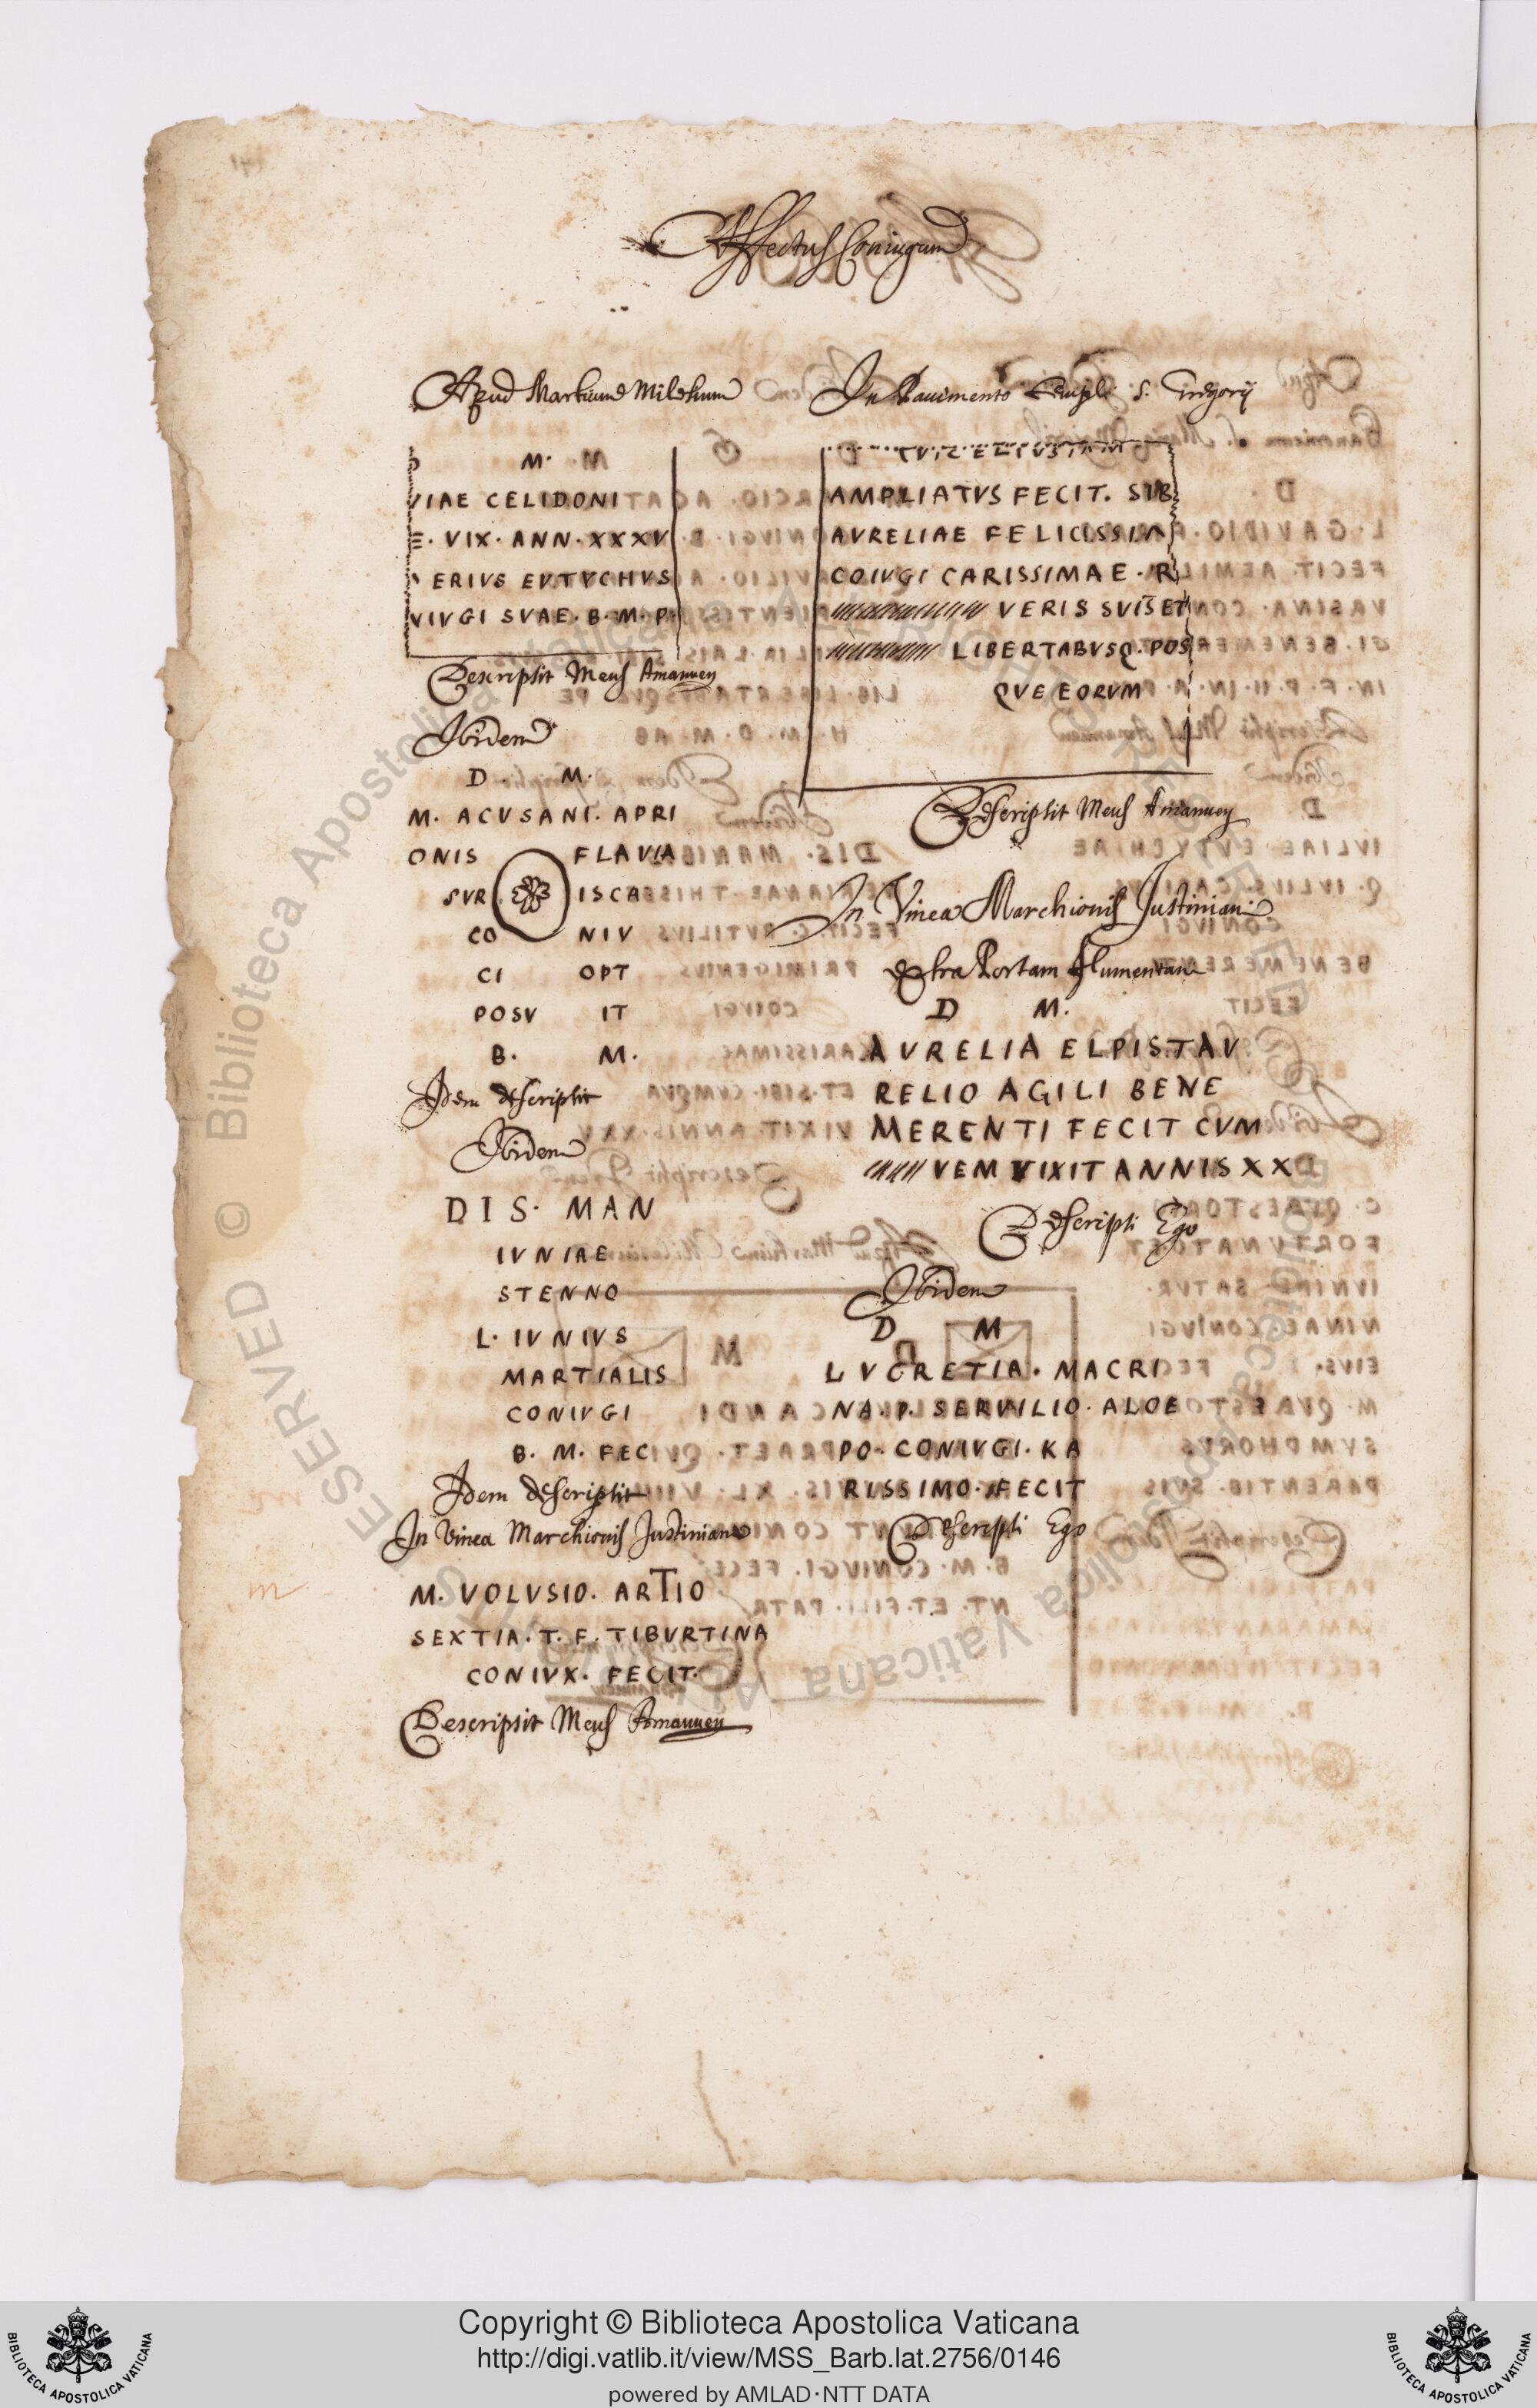 Affectus Coniugum
Apud Martium Miletum
M.
VIAE CELIDONI
E. VIX. ANN. XXXV
ERIVS EVTVCHVS
NIVGI SVAE. B. M. P.
Descripsit Meus Amanuen
Ibidem
D. M.
M. ACVSANI. APRI
ONIS FLAVIA
SVR ISCA
CO NIV
CI OPT
POSV IT
B. M.
Idem descripsit
Ibidem
DIS. MAN
IVNIAE
STENNO
L. IVNIVS
MARTIALIS
CONIVGI
B. M. FEC
Idem descripsit
In Vinea Marchionis Justiniani
M. VOLVSIO. ARTIO
SEXTIA. T. F. TIBVRTINA
CONIVX. FECIT.
Descripsit Meus Amanuen
In Pauimento Templi S. Gregorij
AMPLIATVS FECIT. SIB
AVRELIAE FELICISSIM
COIVGI CARISSIMAE. R
VERIS SVIS ET
LIBERTABVSQ. POS
QVE EORVM
Descripsit Meus Amanuen
In Vinea Marchionis Justiniani
extra Portam Flumentan
D M.
AVRELIA ELPIST AV
RELIO AGILI BENE
MERENTI FECIT CVM
VEM VIXIT ANNIS XX
Descripsi Ego
Ibidem
D M
LVCRETIA. MACRI
NA. P. SERVILIO. ALOE
PO. CONIVGI. KA
RISSIMO. FECIT
Descripsi Ego
Copyright © Biblioteca Apostolica Vaticana
http://digi.vatlib.it/view/MSS_Barb.lat.2756/0146
powered by AMLAD·NTT DATA
BIBLIOTECA APOSTOLICA VATICANA
BIBLIOTECA APOSTOLICA VATICANA